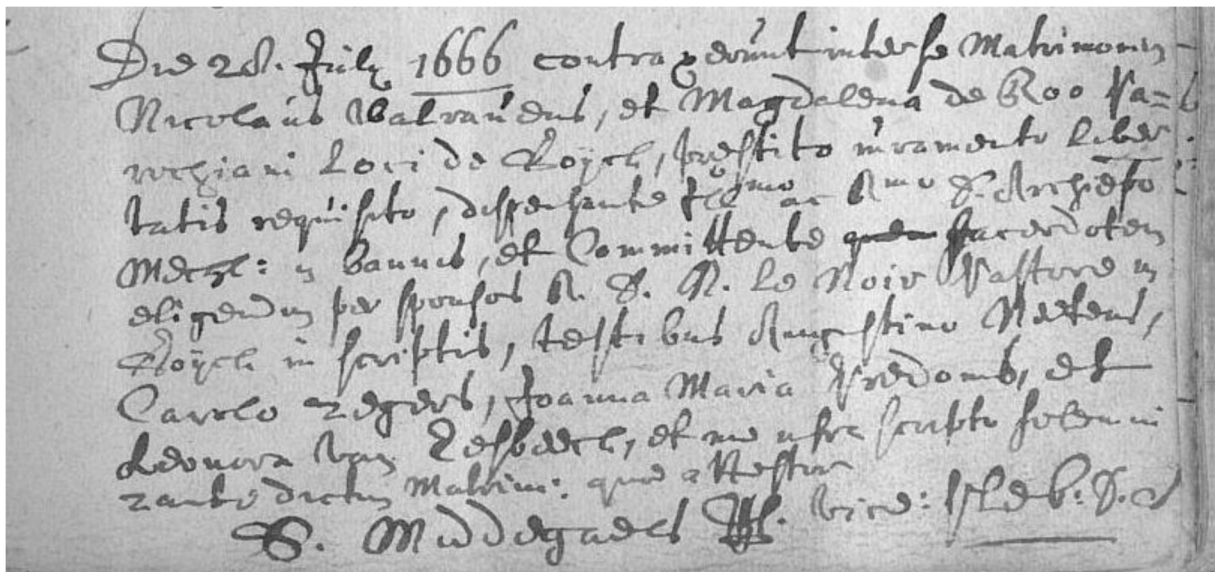 Die 28. July 1666 contraxerunt inter se Matrimoniu
Nicolaus Walravens, et Magdalena de Roo Pa=
rochiani Loci de , prestito iuramento liber
tatis requisito, dispensante Ill^mo ac R^mo D. Archiepo
Mechl: in bannis, et Committente sacerdotem
eligendum per sponsos R. D. N. le Noir Pastore in
in scriptis, testibus Augustino ,
Carolo Zegers, Joanna Maria , et
Leonora van , et me scripto solemni
zante dictum Matrim: quod attestor
S. Middegaels vice: